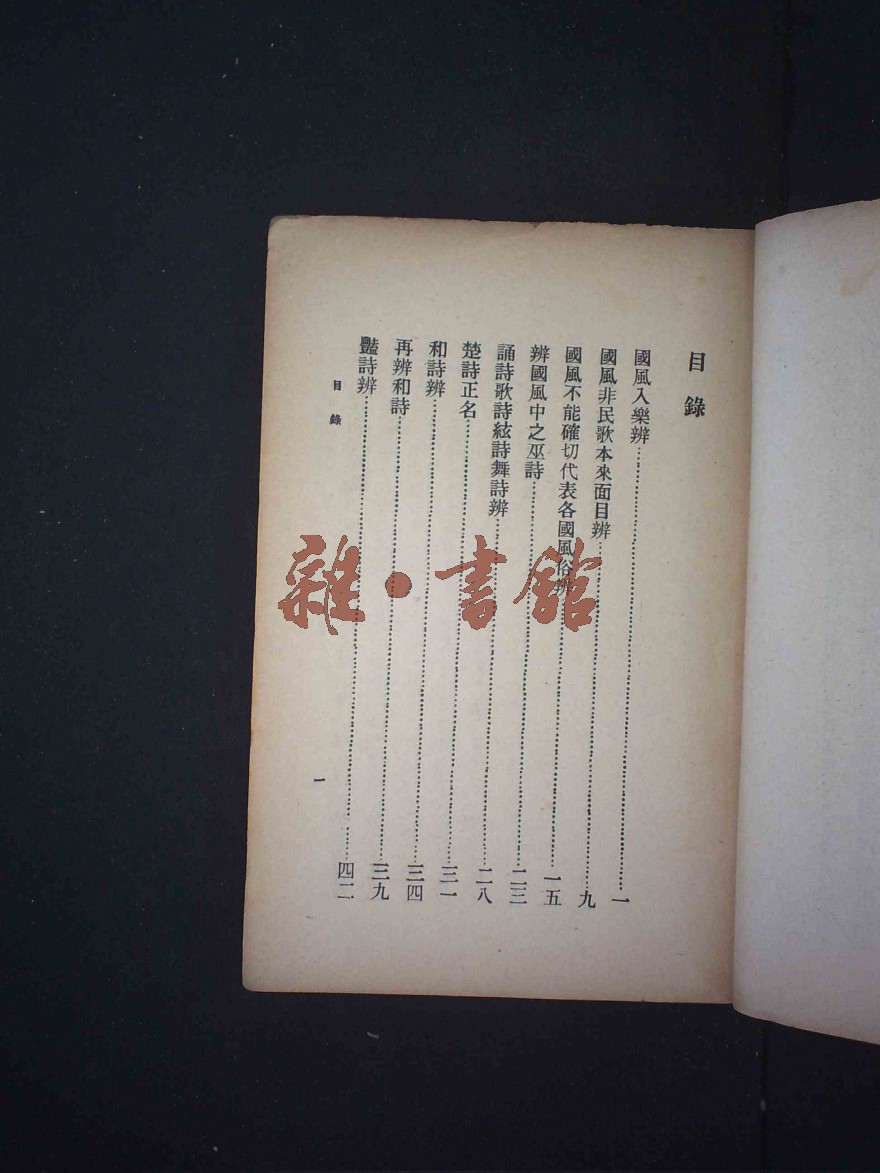 目錄
國風入樂辨……一
國風非民歌本來面目辨……九
國風不能確切代表各國風俗辨……一五
辨國風中之巫詩……二三
誦詩歌詩絃詩舞詩辨……二八
楚詩正名……三一
和詩辨……三四
再辨和詩……三九
豔詩辨……四二
目錄
一
雜·書館